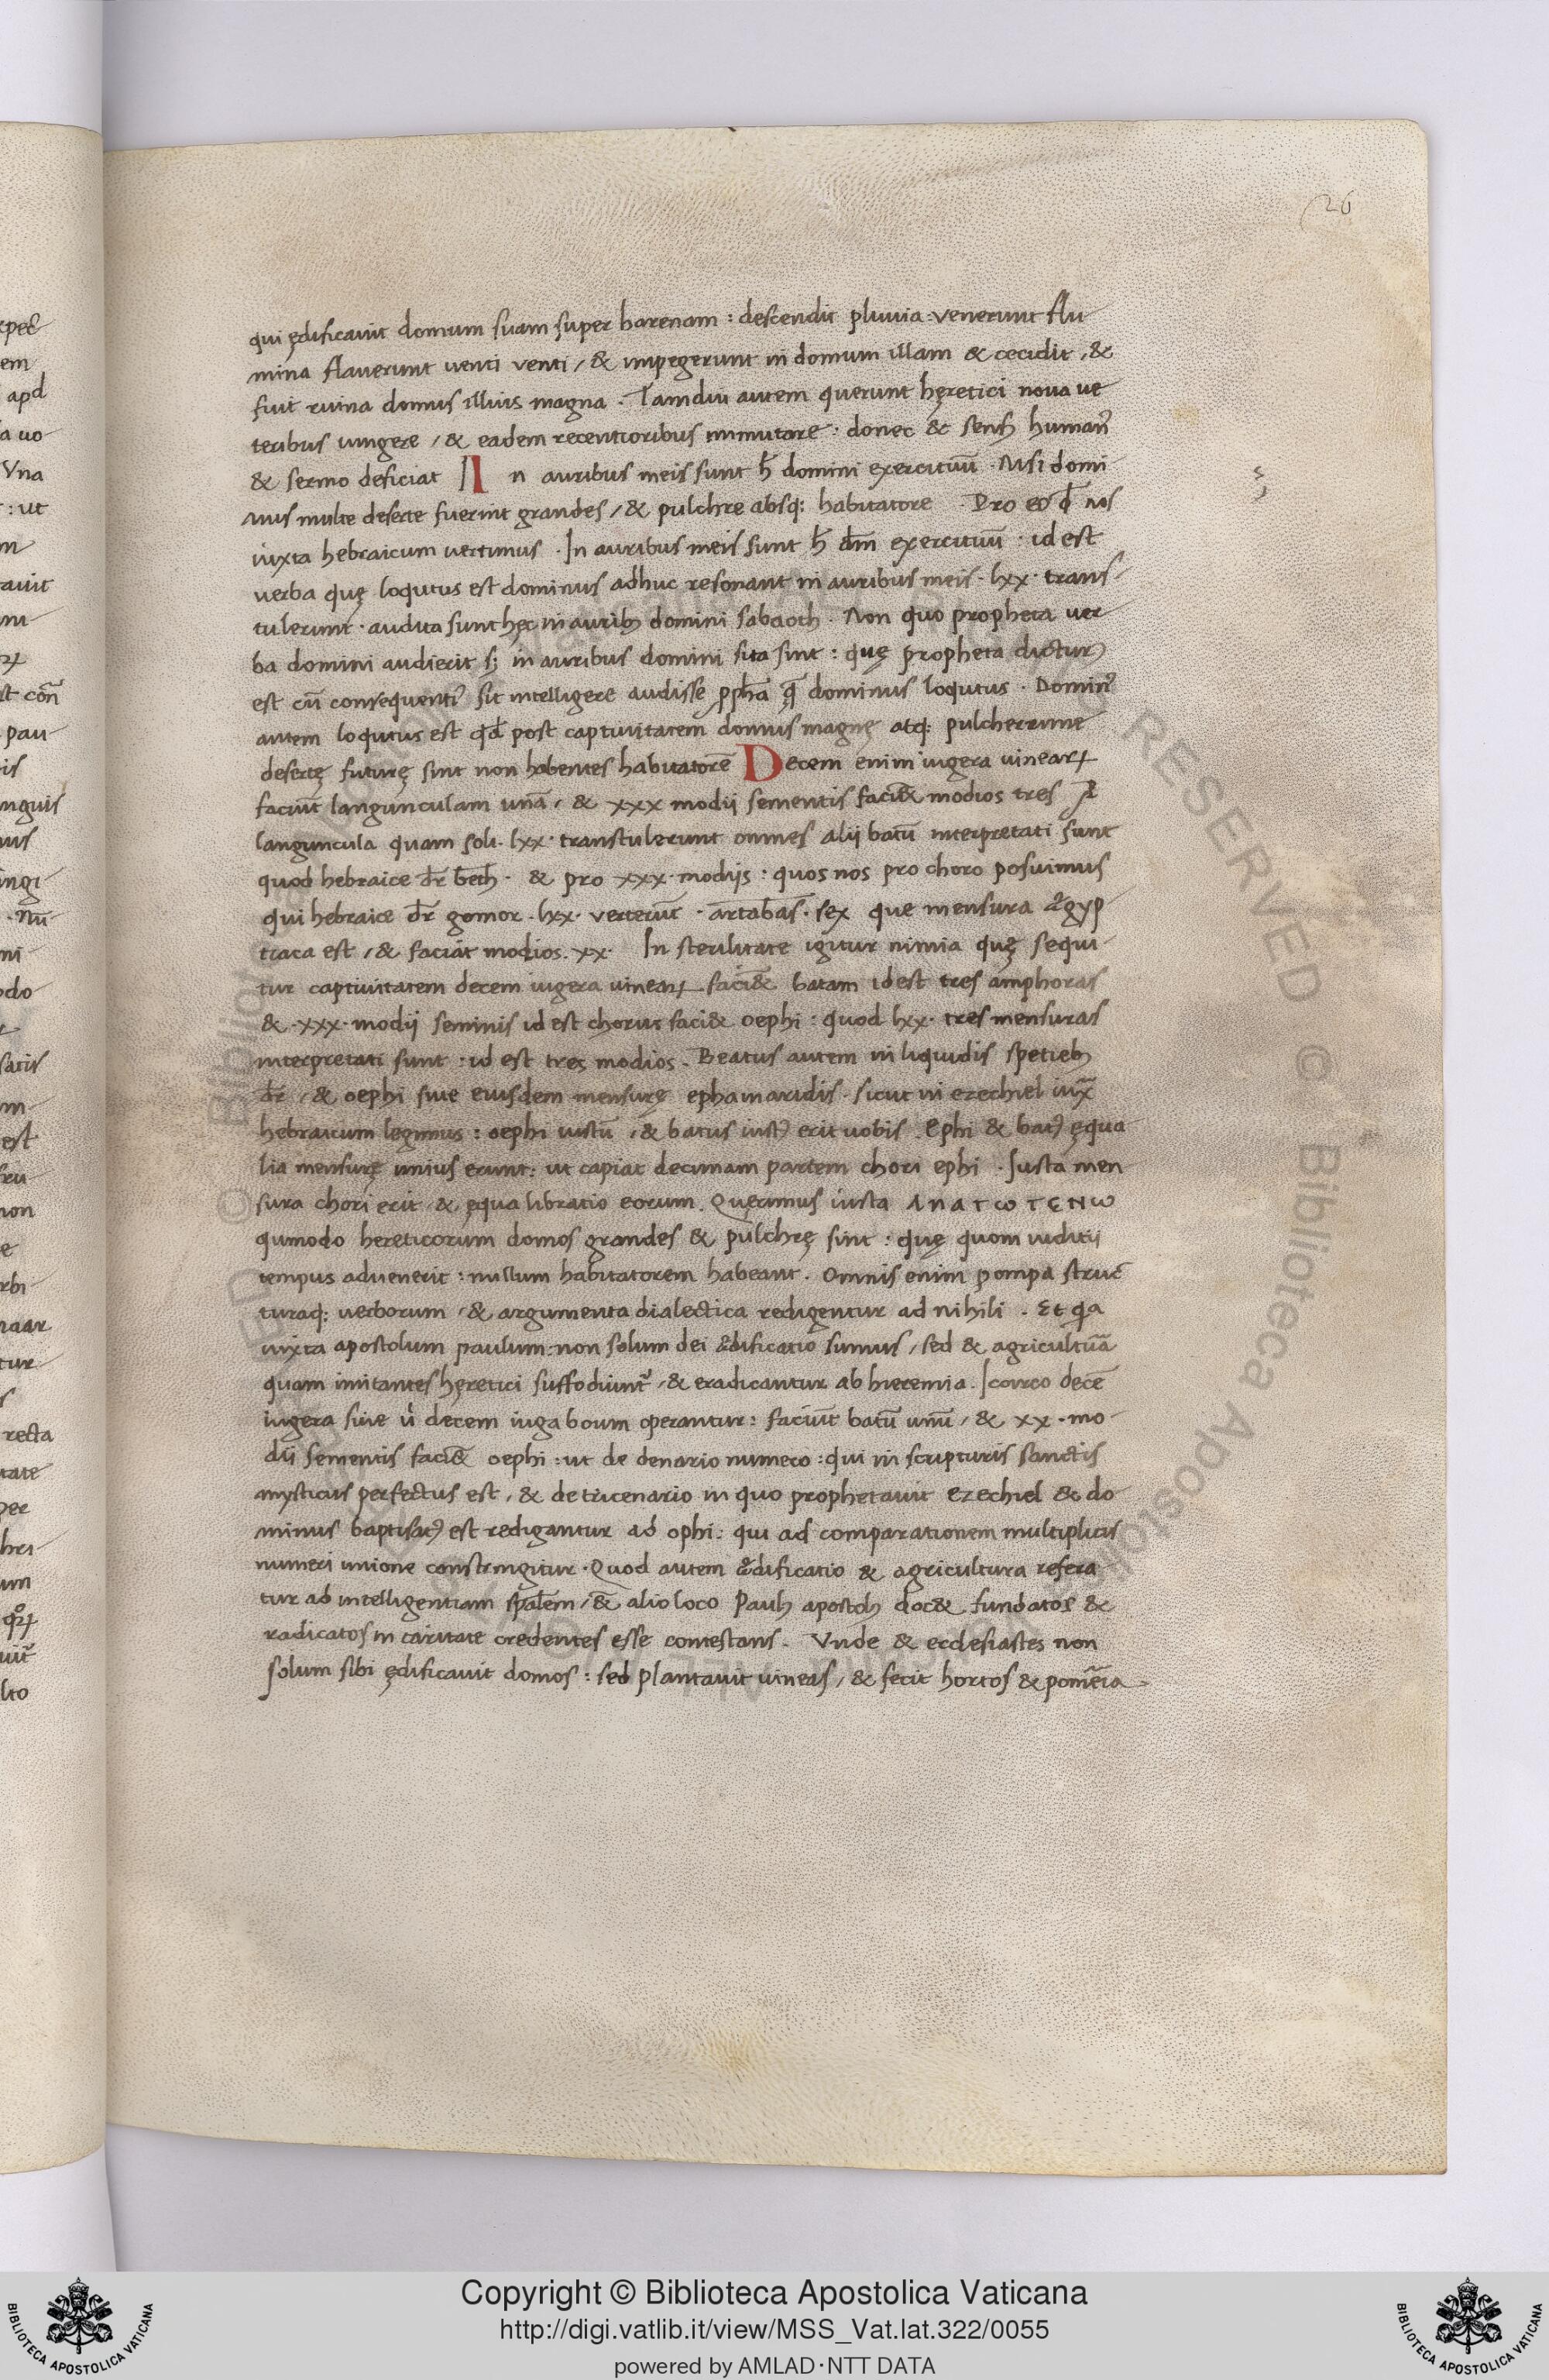 26
qui ędificauit domum suam super harenam : descendit pluuia : venerunt flu
mina flauerunt uenti venti / & impegerunt in domum illam & cecidit / &
fuit ruina domus illius magna . Tamdiu autem querunt hęretici noua ue
teribus iungere / & eadem recentioribus inmutare : donec & sensꝫ humanꝰ
& sermo deficiat In auribus meis sunt h̄ domini exercituū . Nisi domi
nus multe deserte fuerint grandes / & pulchre absq; habitatore . Pro eo qd̄ nos
iuxta hebraicum uertimus . In auribus meis sunt h̄ dm̄ exercituū : id est
verba quę loqutus est dominus adhuc resonant in auribus meis . lxx . trans
tulerunt . audita sunt hęc in auribꝫ domini sabaoth . Non quo propheta ver
ba domini audierit sꝫ in auribus domini sita sint : quę propheta dicturꝰ
est cū consequentiꝰ sit intelligere audisse ꝓpha q̄ dominus loqutus . Dominꝰ
autem loqutus est qd̄ post captiuitatem domus magnę atq; pulcherrime
desertę futurę sint non habentes habitatorē Decem enim iugera uinearꝝ
faciūt langunculam unā / & xxx modii sementis faciēt modios tres
languncula quam soli . lxx . transtulerunt omnes alij batū interpretati sunt
quod hebraice dr̄ beth . & pro xxx . modijs : quos nos pro choro posuimus
qui hebraice dr̄ gomor . lxx . verterūt . artabas . sex que mensura ægyp
tiaca est / & faciat modios . xx . In sterilitate igitur nimia quę sequi
tur captiuitatem decem iugera uinearꝝ faciēt batam id est tres amphoras
& . xxx . modij seminis id est chorus faci& oephi : quod lxx . tres mensuras
interpretati sunt : id est tres modios . Beatus autem in liquidis spetiebꝫ
dr̄ / & oephi siue eiusdem mensurę epha in aridis . sicut in ezechiel iux̄
hebraicum legimus : oephi iustū / & batus iustꝰ erit uobis . Ephi & batꝰ ęqua
lia mensurę unius erunt : ut capiat decimam partem chori ephi . Iusta men
sura chori erit & ęqua libratio eorum . Querimus iusta ΛΝΑΓωΤΕΝω
qumodo hereticorum domos grandes & pulchrę sint : quę quom iuditij
tempus aduenerit : nullum habitatorem habeant . Omnis enim pompa struc̄
turaq; uerborum / & argumenta dialectica redigentur ad nihili . Et qa
iuxta apostolum paulum : non solum dei ædificatio sumus / sed & agricultura
quam imitantes hęretici suffodiunt̄ / & eradicantur ab hieremia . Icirco decē
iugera siue ut decem iuga boum operantur : faciūt batū unū / & xx . mo
dij sementis faciēt oephi : ut de denario numero : qui in scripturis sanctis
mysticus perfectus est / & de tricenario in quo prophetauit ezechiel & do
minus baptisatꝰ est redigantur ad ophi : qui ad comparationem multiplicis
numeri unione constringitur . Quod autem ædificatio & agricultura refera
tur ad intelligentiam spalem / & alio loco Paulꝫ apostolꝫ doc& fundatos &
radicatos in caritate credentes esse contestans . Vnde & ecclesiastes non
solum sibi ędificauit domos : sed plantauit uineas / & fecit hortos & pomeria
Copyright © Biblioteca Apostolica Vaticana
http://digi.vatlib.it/view/MSS_Vat.lat.322/0055
powered by AMLAD·NTT DATA